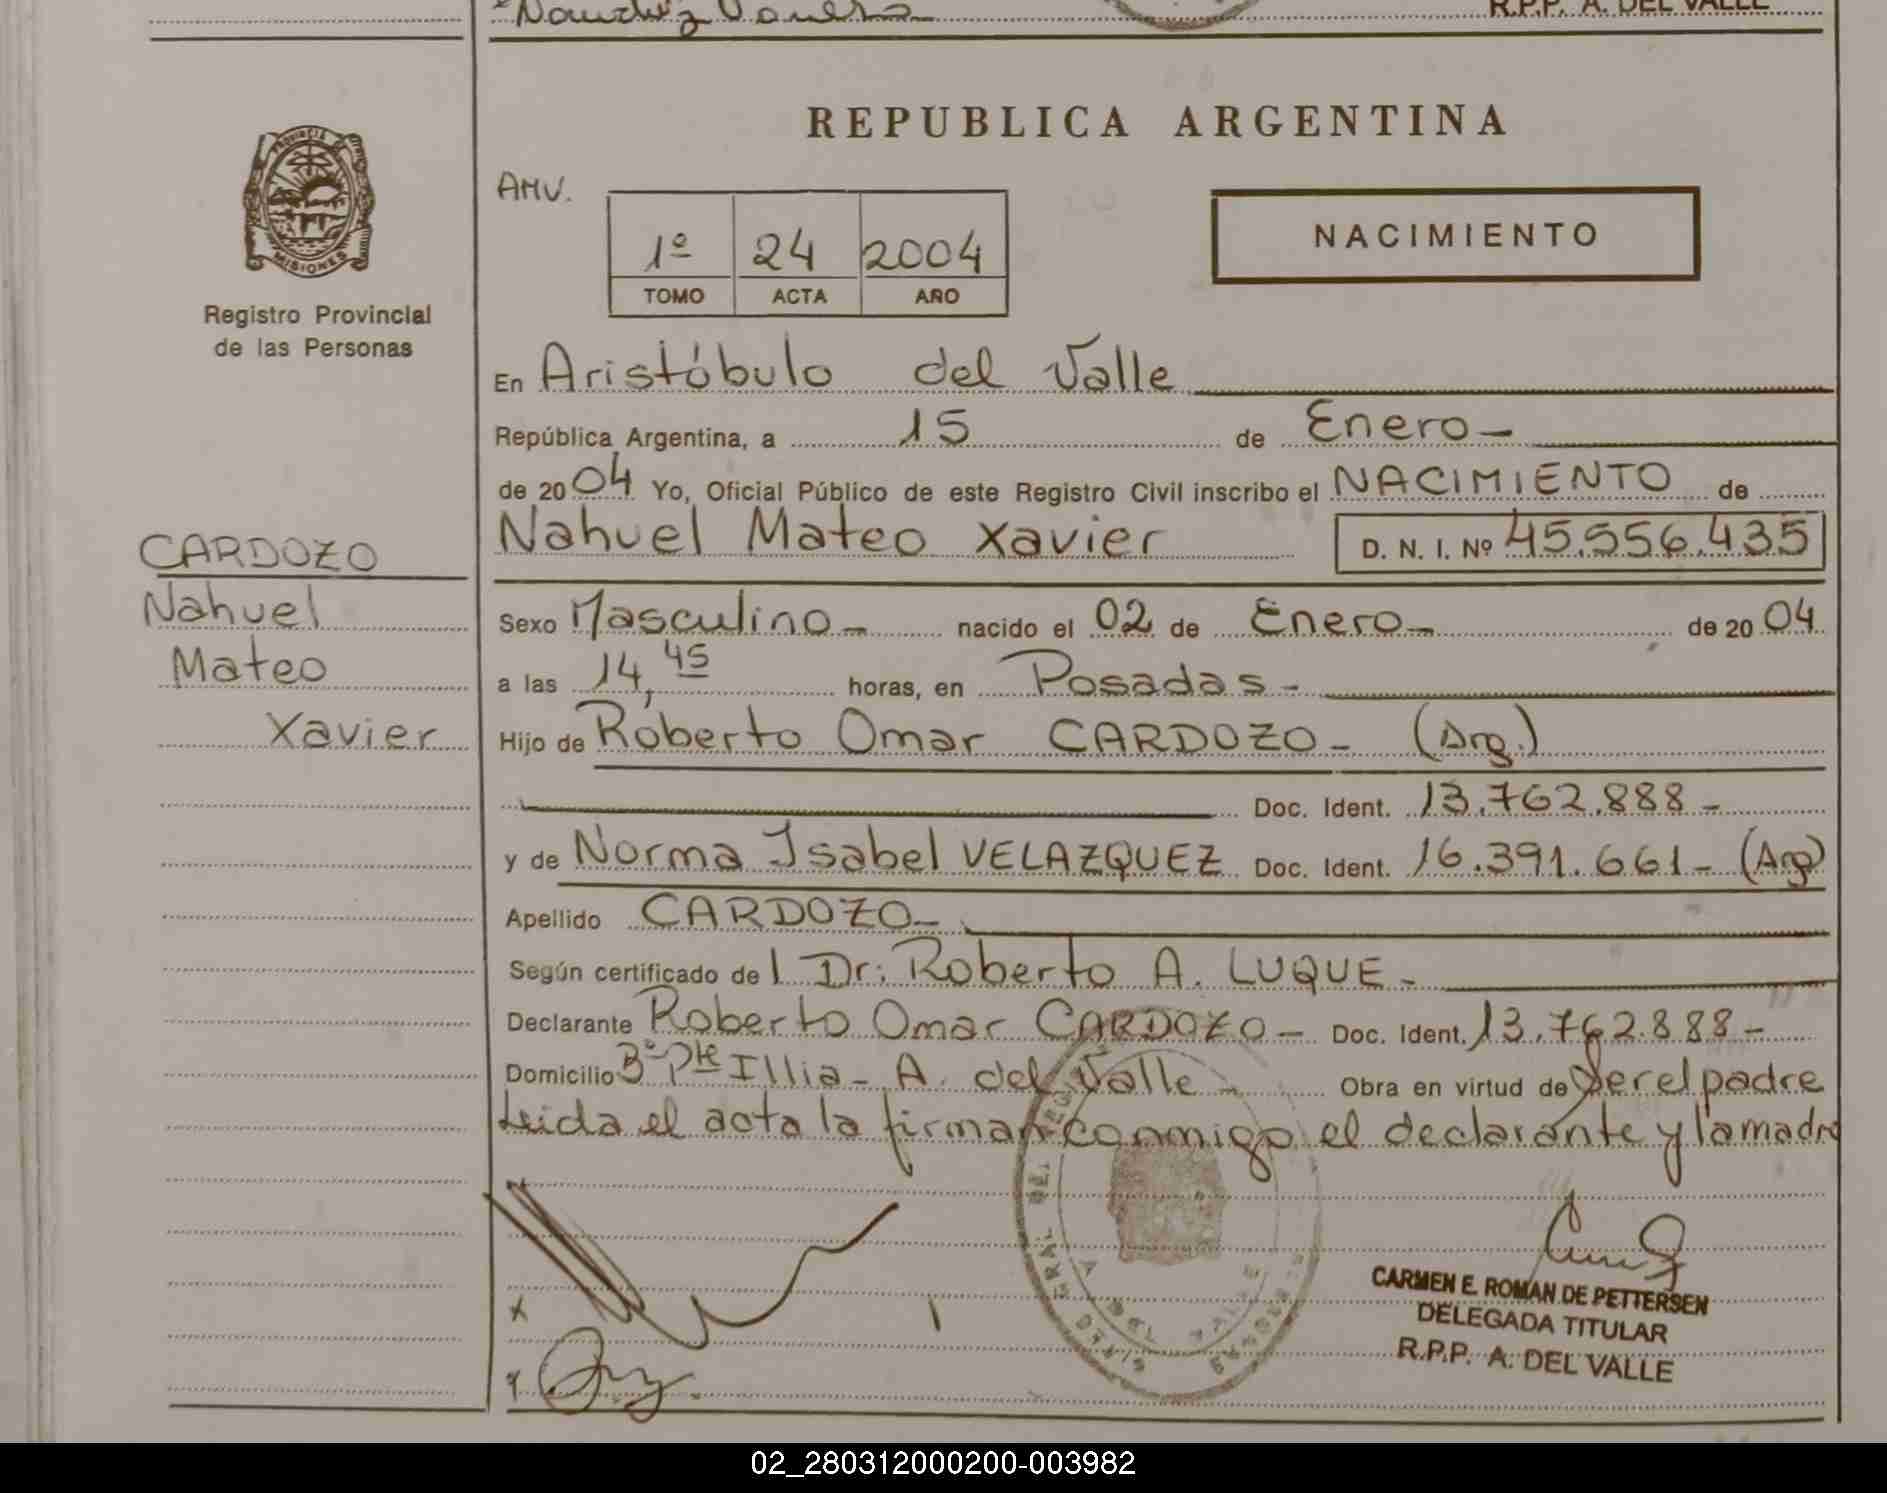 R.P.P. A. DEL VALLE
PROVINCIA DE
MISIONES
Registro Provincial
de las Personas
REPUBLICA ARGENTINA
AMV.
1º 24 2004
TOMO ACTA AÑO
NACIMIENTO
En Aristóbulo del Valle
República Argentina, a 15 de Enero
de 2004 Yo, Oficial Público de este Registro Civil inscribo el NACIMIENTO de
Nahuel Mateo Xavier D. N. I. Nº 45.556.435
CARDOZO
Nahuel
Mateo
Xavier
Sexo Masculino nacido el 02 de Enero de 2004
a las 14,45 horas, en Posadas
Hijo de Roberto Omar CARDOZO (Arg.)
Doc. Ident. 13.762.888
y de Norma Isabel VELAZQUEZ Doc. Ident. 16.391.661 (Arg)
Apellido CARDOZO
Según certificado del Dr: Roberto A. LUQUE
Declarante Roberto Omar CARDOZO Doc. Ident. 13.762.888
Domicilio Bº Pte Illia - A. del Valle Obra en virtud de ser el padre
Leida el acta la firman conmigo el declarante y la madre
CARMEN E. ROMAN DE PETTERSEN
DELEGADA TITULAR
R.P.P. A. DEL VALLE
02_280312000200-003982